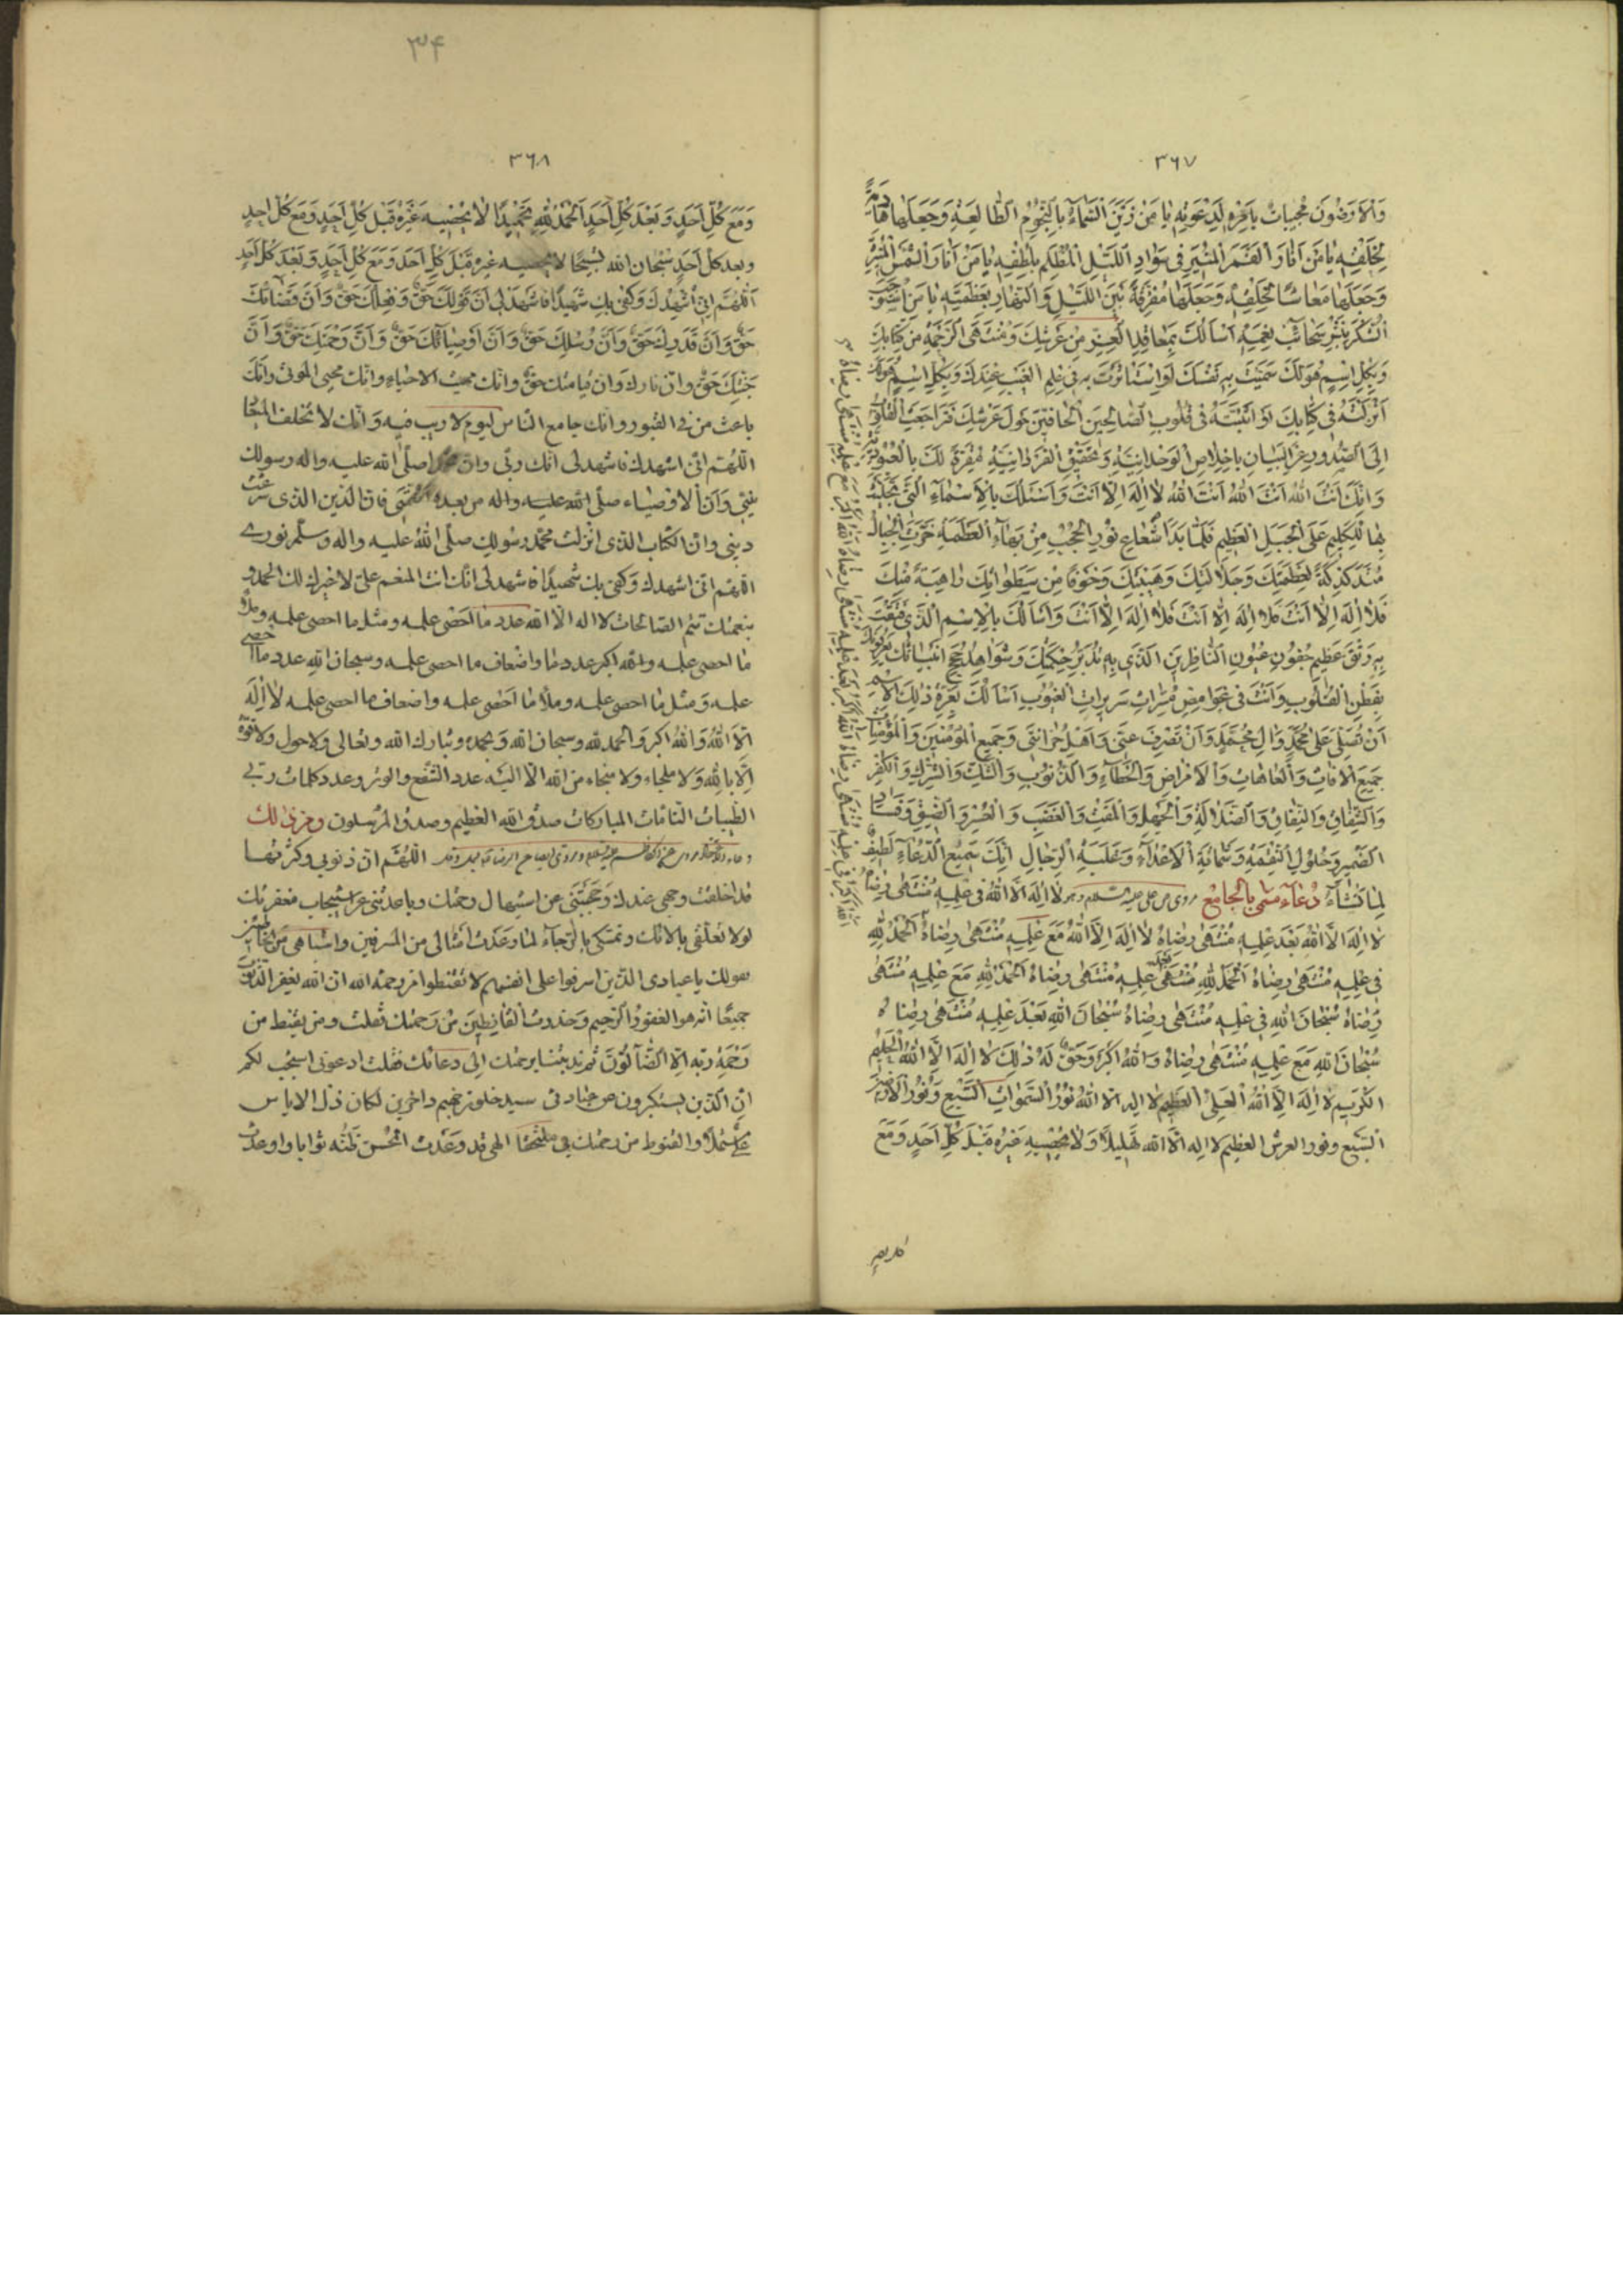 ٣٦٧
وَالْاَرَضُونَ مُجِيبَاتٌ بِاَمْرِهِ لِدَعْوَتِهِ يَا مَنْ زَيَّنَ السَّمَآءَ بِالنُّجُومِ الطَّالِعَةِ وَجَعَلَهَا هَادِيَةً
لِخَلْقِهِ يَا مَنْ اَنَارَ الْقَمَرَ الْمُنِيرَ فِى سَوَادِ اللَّيْلِ الْمُظْلِمِ بِلُطْفِهِ يَا مَنْ اَنَارَ الشَّمْسَ الْمُنِيرَةَ
وَجَعَلَهَا مَعَاشًا لِخَلْقِهِ وَجَعَلَهَا مُفَرِّقَةً بَيْنَ اللَّيْلِ وَالنَّهَارِ بِعَظَمَتِهِ يَا مَنِ اسْتَوْجَبَ
الشُّكْرَ بِنَشْرِ سَحَائِبِ نِعَمِهِ اَسْاَلُكَ بِمَعَاقِدِ الْعِزِّ مِنْ عَرْشِكَ وَمُنْتَهَى الرَّحْمَةِ مِنْ كِتَابِكَ
وَبِكُلِّ اسْمٍ هُوَ لَكَ سَمَّيْتَ بِهِ نَفْسَكَ اَوِ اسْتَاْثَرْتَ بِهِ فِى عِلْمِ الْغَيْبِ عِنْدَكَ وَبِكُلِّ اسْمٍ هُوَ لَكَ
اَنْزَلْتَهُ فِى كِتَابِكَ اَوْ اَثْبَتَّهُ فِى قُلُوبِ الصَّالِحِينَ الْحَافِّينَ حَوْلَ عَرْشِكَ فَتَرَاجَعَتِ الْقُلُوبُ
اِلَى الصُّدُورِ عَنِ الْبَيَانِ بِاِخْلَاصِ الْوَحْدَانِيَّةِ وَتَحْقِيقِ الْفَرْدَانِيَّةِ مُقِرَّةً لَكَ بِالْعُبُودِيَّةِ
وَاِنَّكَ اَنْتَ اللّٰهُ اَنْتَ اللّٰهُ اَنْتَ اللّٰهُ لَا اِلٰهَ اِلَّا اَنْتَ وَاَسْئَلُكَ بِالْاَسْمَآءِ الَّتِى تَجَلَّيْتَ
بِهَا لِلْكَلِيمِ عَلَى الْجَبَلِ الْعَظِيمِ فَلَمَّا بَدَا شُعَاعُ نُورِ الْحُجُبِ مِنْ بَهَآءِ الْعَظَمَةِ خَرَّتِ الْجِبَالُ
مُتَدَكْدِكَةً لِعَظَمَتِكَ وَجَلَالِكَ وَهَيْبَتِكَ وَخَوْفًا مِنْ سَطْوَاتِكَ رَاهِبَةً مِنْكَ
فَلَا اِلٰهَ اِلَّا اَنْتَ فَلَا اِلٰهَ اِلَّا اَنْتَ فَلَا اِلٰهَ اِلَّا اَنْتَ وَاَسْاَلُكَ بِالْاِسْمِ الَّذِى فَتَقْتَ
بِهِ رَتْقَ عَظِيمِ جُفُونِ عُيُونِ النَّاظِرِينَ الَّذِى بِهِ تُدَبِّرُ حِكْمَتَكَ وَشَوَاهِدَ حُجَجِ اَنْبِيَائِكَ يَعْرِفُونَكَ
بِفِطَنِ الْقُلُوبِ وَاَنْتَ فِى غَوَامِضِ مُسِرَّاتِ سَرِيرَاتِ الْغُيُوبِ اَسْاَلُكَ بِعِزَّةِ ذٰلِكَ الْاِسْمِ
اَنْ تُصَلِّىَ عَلٰى مُحَمَّدٍ وَاٰلِ مُحَمَّدٍ وَاَنْ تَصْرِفَ عَنِّى وَاَهْلِ حُزَانَتِى وَجَمِيعِ الْمُؤْمِنِينَ وَالْمُؤْمِنَاتِ
جَمِيعَ الْاٰفَاتِ وَالْعَاهَاتِ وَالْاَمْرَاضِ وَالْخَطَآءِ وَالذُّنُوبِ وَالشَّكِّ وَالشِّرْكِ وَالْكُفْرِ
وَالشِّقَاقِ وَالنِّفَاقِ وَالضَّلَالَةِ وَالْجَهْلِ وَالْمَقْتِ وَالْغَضَبِ وَالْعُسْرِ وَالضِّيقِ وَفَسَادِ
الضَّمِيرِ وَحُلُولِ النَّقِمَةِ وَشَمَاتَةِ الْاَعْدَآءِ وَغَلَبَةِ الرِّجَالِ اِنَّكَ سَمِيعُ الدُّعَآءِ لَطِيفٌ
لِمَا تَشَآءُ دُعَآء مسمى بالجامع لَا اِلٰهَ اِلَّا اللّٰهُ فِى عِلْمِهِ مُنْتَهٰى رِضَاهُ
لَا اِلٰهَ اِلَّا اللّٰهُ بَعْدَ عِلْمِهِ مُنْتَهٰى رِضَاهُ لَا اِلٰهَ اِلَّا اللّٰهُ مَعَ عِلْمِهِ مُنْتَهٰى رِضَاهُ اَلْحَمْدُ لِلّٰهِ
فِى عِلْمِهِ مُنْتَهٰى رِضَاهُ اَلْحَمْدُ لِلّٰهِ بَعْدَ عِلْمِهِ مُنْتَهٰى رِضَاهُ اَلْحَمْدُ لِلّٰهِ مَعَ عِلْمِهِ مُنْتَهٰى
رِضَاهُ سُبْحَانَ اللّٰهِ فِى عِلْمِهِ مُنْتَهٰى رِضَاهُ سُبْحَانَ اللّٰهِ بَعْدَ عِلْمِهِ مُنْتَهٰى رِضَاهُ
سُبْحَانَ اللّٰهِ مَعَ عِلْمِهِ مُنْتَهٰى رِضَاهُ وَاللّٰهُ اَكْبَرُ وَحَقٌّ لَهُ ذٰلِكَ لَا اِلٰهَ اِلَّا اللّٰهُ الْحَلِيمُ
الْكَرِيمُ لَا اِلٰهَ اِلَّا اللّٰهُ الْعَلِىُّ الْعَظِيمُ لَا اِلٰهَ اِلَّا اللّٰهُ نُورُ السَّمٰوَاتِ السَّبْعِ وَنُورُ الْاَرَضِينَ
السَّبْعِ وَنُورُ الْعَرْشِ الْعَظِيمِ لَا اِلٰهَ اِلَّا اللّٰهُ تَهْلِيلًا وَلَا يُحْصِيهِ غَيْرُهُ قَبْلَ كُلِّ اَحَدٍ وَمَعَ
٣٤
٣٦٨
وَمَعَ كُلِّ اَحَدٍ وَبَعْدَ كُلِّ اَحَدٍ اَلْحَمْدُ لِلّٰهِ تَحْمِيدًا لَا يُحْصِيهِ غَيْرُهُ قَبْلَ كُلِّ اَحَدٍ وَمَعَ كُلِّ اَحَدٍ
وبعد كل اَحَدٍ سُبْحَانَ اللّٰه تَسْبِيحًا لا يحصيه غيره قَبْلَ كُلِّ اَحَدٍ وَمَعَ كُلِّ اَحَدٍ وَبَعْدَ كُلِّ اَحَدٍ
اَللّٰهُمَّ اِنِّى اُشْهِدُكَ وَكَفٰى بِكَ شَهِيدًا فَاشْهَدْ لِى اَنَّ قَوْلَكَ حَقٌّ وَفِعْلَكَ حَقٌّ وَاَنَّ قَضَائَكَ
حَقٌّ وَاَنَّ قَدَرَكَ حَقٌّ وَاَنَّ رُسُلَكَ حَقٌّ وَاَنَّ اَوْصِيَائَكَ حَقٌّ وَاَنَّ رَحْمَتَكَ حَقٌّ وَاَنَّ
جَنَّتَكَ حَقٌّ وَانّ نارك وَان قيامتك حقّ وانك مميت الاحياء وانّك محيى الموتى وانّك
باعث من فى القبور وانك جامع النّاس ليوم لا ريب فيه وَانّك لا تخلف الميعاد
اللّٰهُمّ انّى اشهدك فاشهد لى انّك ربّى وانّ محمّدا صلّى اللّه عليه واله رسولك
نبيّى وَاَنّ الاوصياء صلّى اللّه عليه واله من بعده ائمّتى فانّ الدّين الذى شرعت
دينى وانّ الكتاب الذى انزلت على محمّد رسولك صلّى اللّه عليه واله وسلّم نورى
اللّهمّ انّى اشهدك وكفى بك شهيدًا فاشهد لى انّك انت المنعم علىّ لا غيرك لك الحمد و
بنعمتك تتمّ الصّالحات لا اله الّا اللّه عدد ما احصى علمه ومثل ما احصى علمه وملأ
ما احصى علمه واللّه اكبر عدد ما واضعاف ما احصى علمه وسبحان اللّه عدد ما احصى
علمه ومثل ما احصى علمه وملأ ما احصى علمه واضعاف ما احصى علمه لا اله
الّا اللّه واللّه اكبر والحمد للّه وسبحان اللّه وبحمده وتبارك اللّه وتعالى ولا حول ولا قوّة
اِلّا باللّه ولا ملجاء ولا منجاء من اللّه الّا اليه عدد الشفع والوتر وعدد كلمات ربّى
الطّيبات التامّات المباركات صدق اللّه العظيم وصدق المرسلون
اللّٰهُمّ انّ ذنوبى وكثرتها
قد اخلقت وجهى عندك وحجبتنى عن استيهال رحمتك وباعدتنى عن استيجاب مغفرتك
لولا تعلّقى بالائك وتمسّكى بالرّجاء لما وعدت امثالى من المسرفين واشباهى من الخاطئين
بقولك يا عبادى الذّين اسرفوا على انفسهم لا تقنطوا من رحمة اللّه ان اللّه يغفر الذّنوب
جميعًا انّه هو الغفور الرّحيم وحذّرت القانطين من رحمتك فقلت ومن يقنط من
رَحْمَةِ ربّه اِلّا الضّآلّون ثمّ ندبتنا برحمتك اِلى دعائك فقلت ادعونى استجب لكم
اِنّ الّذين يستكبرون عن عبادتى سيدخلون جهنم داخرين لكان ذلّ الاياس
علىّ مشتملًا والقنوط من رحمتك بى ملتحفًا الهى قد وعدت المحسن ظنّه ثوابا واوعدت